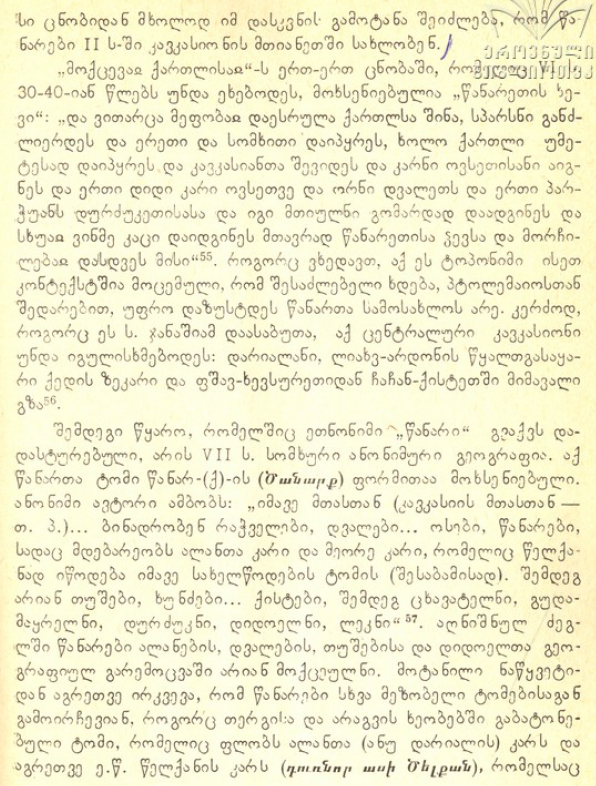 სი ცნობიდან მხოლოდ იმ დასკვნის გამოტანა შეიძლება, რომ წა-
ნარები II ს-ში კავკასიონის მთიანეთში სახლობენ.
ეროვნული
ბიბლიოთეკა
„მოქცევაჲ ქართლისაჲ“-ს ერთ-ერთ ცნობაში, რომელიც VI ს.
30-40-იან წლებს უნდა ეხებოდეს, მოხსენიებულია „წანარეთის ხე-
ვი“: „და ვითარცა მეფობაჲ დაესრულა ქართლსა შინა, სპარსნი განძ-
ლიერდეს და ერეთი და სომხითი დაიპყრეს, ხოლო ქართლი უმე-
ტესად დაიპყრეს და კავკასიანთა შევიდეს და კარნი ოვსეთისანი აიგ-
ნეს და ერთი დიდი კარი ოვსეთვე და ორნი დვალეთს და ერთი პარ-
ჭუანს დურძუკეთისასა და იგი მთიულნი გომარდად დაადგინეს და
სხუაჲ ვინმე კაცი დაიდგინეს მთავრად წანარეთისა ჴევსა და მორჩი-
ლებაჲ დასდვეს მისი“⁵⁵. როგორც ვხედავთ, აქ ეს ტოპონიმი ისეთ
კონტექსტშია მოცემული, რომ შესაძლებელი ხდება, პტოლემაიოსთან
შედარებით, უფრო დაზუსტდეს წანართა სამოსახლოს არე. კერძოდ,
როგორც ეს ს. ჯანაშიამ დაასაბუთა, აქ ცენტრალური კავკასიონი
უნდა იგულისხმებოდეს: დარიალანი, ლიახვ-არდონის წყალთგასაყა-
რი ქედის ზეკარი და ფშავ-ხევსურეთიდან ჩაჩან-ქისტეთში მიმავალი
გზა⁵⁶.
შემდეგი წყარო, რომელშიც ეთნონიმი „წანარი“ გვაქვს და-
დასტურებული, არის VII ს. სომხური ანონიმური გეოგრაფია. აქ
წანართა ტომი წანარ-(ქ)-ის (Ծանարք) ფორმითაა მოხსენიებული.
ანონიმი ავტორი ამბობს: „იმავე მთასთან (კავკასიის მთასთან —
თ. პ.)... ბინადრობენ რაჭველები, დვალები... ოსები, წანარები,
სადაც მდებარეობს ალანთა კარი და მეორე კარი, რომელიც წელქა-
ნად იწოდება იმავე სახელწოდების ტომის (შესაბამისად). შემდეგ
არიან თუშები, ხუნძები... ქისტები, შემდეგ ცხავატელნი, გუდა-
მაყრელნი, დურძუკნი, დიდოელნი, ლეკნი“⁵⁷. აღნიშნულ ძეგ-
ლში წანარები ალანების, დვალების, თუშებისა და დიდოელთა გეო-
გრაფიულ გარემოცვაში არიან მოქცეულნი. მოტანილი ნაწყვეტი-
დან აგრეთვე ირკვევა, რომ წანარები სხვა მეზობელი ტომებისაგან
გამოირჩევიან, როგორც თერგისა და არაგვის ხეობებში გაბატონე-
ბული ტომი, რომელიც ფლობს ალანთა (ანუ დარიალის) კარს და
აგრეთვე ე.წ. წელქანის კარს (դուռնոր ասի Ծելքան), რომელსაც